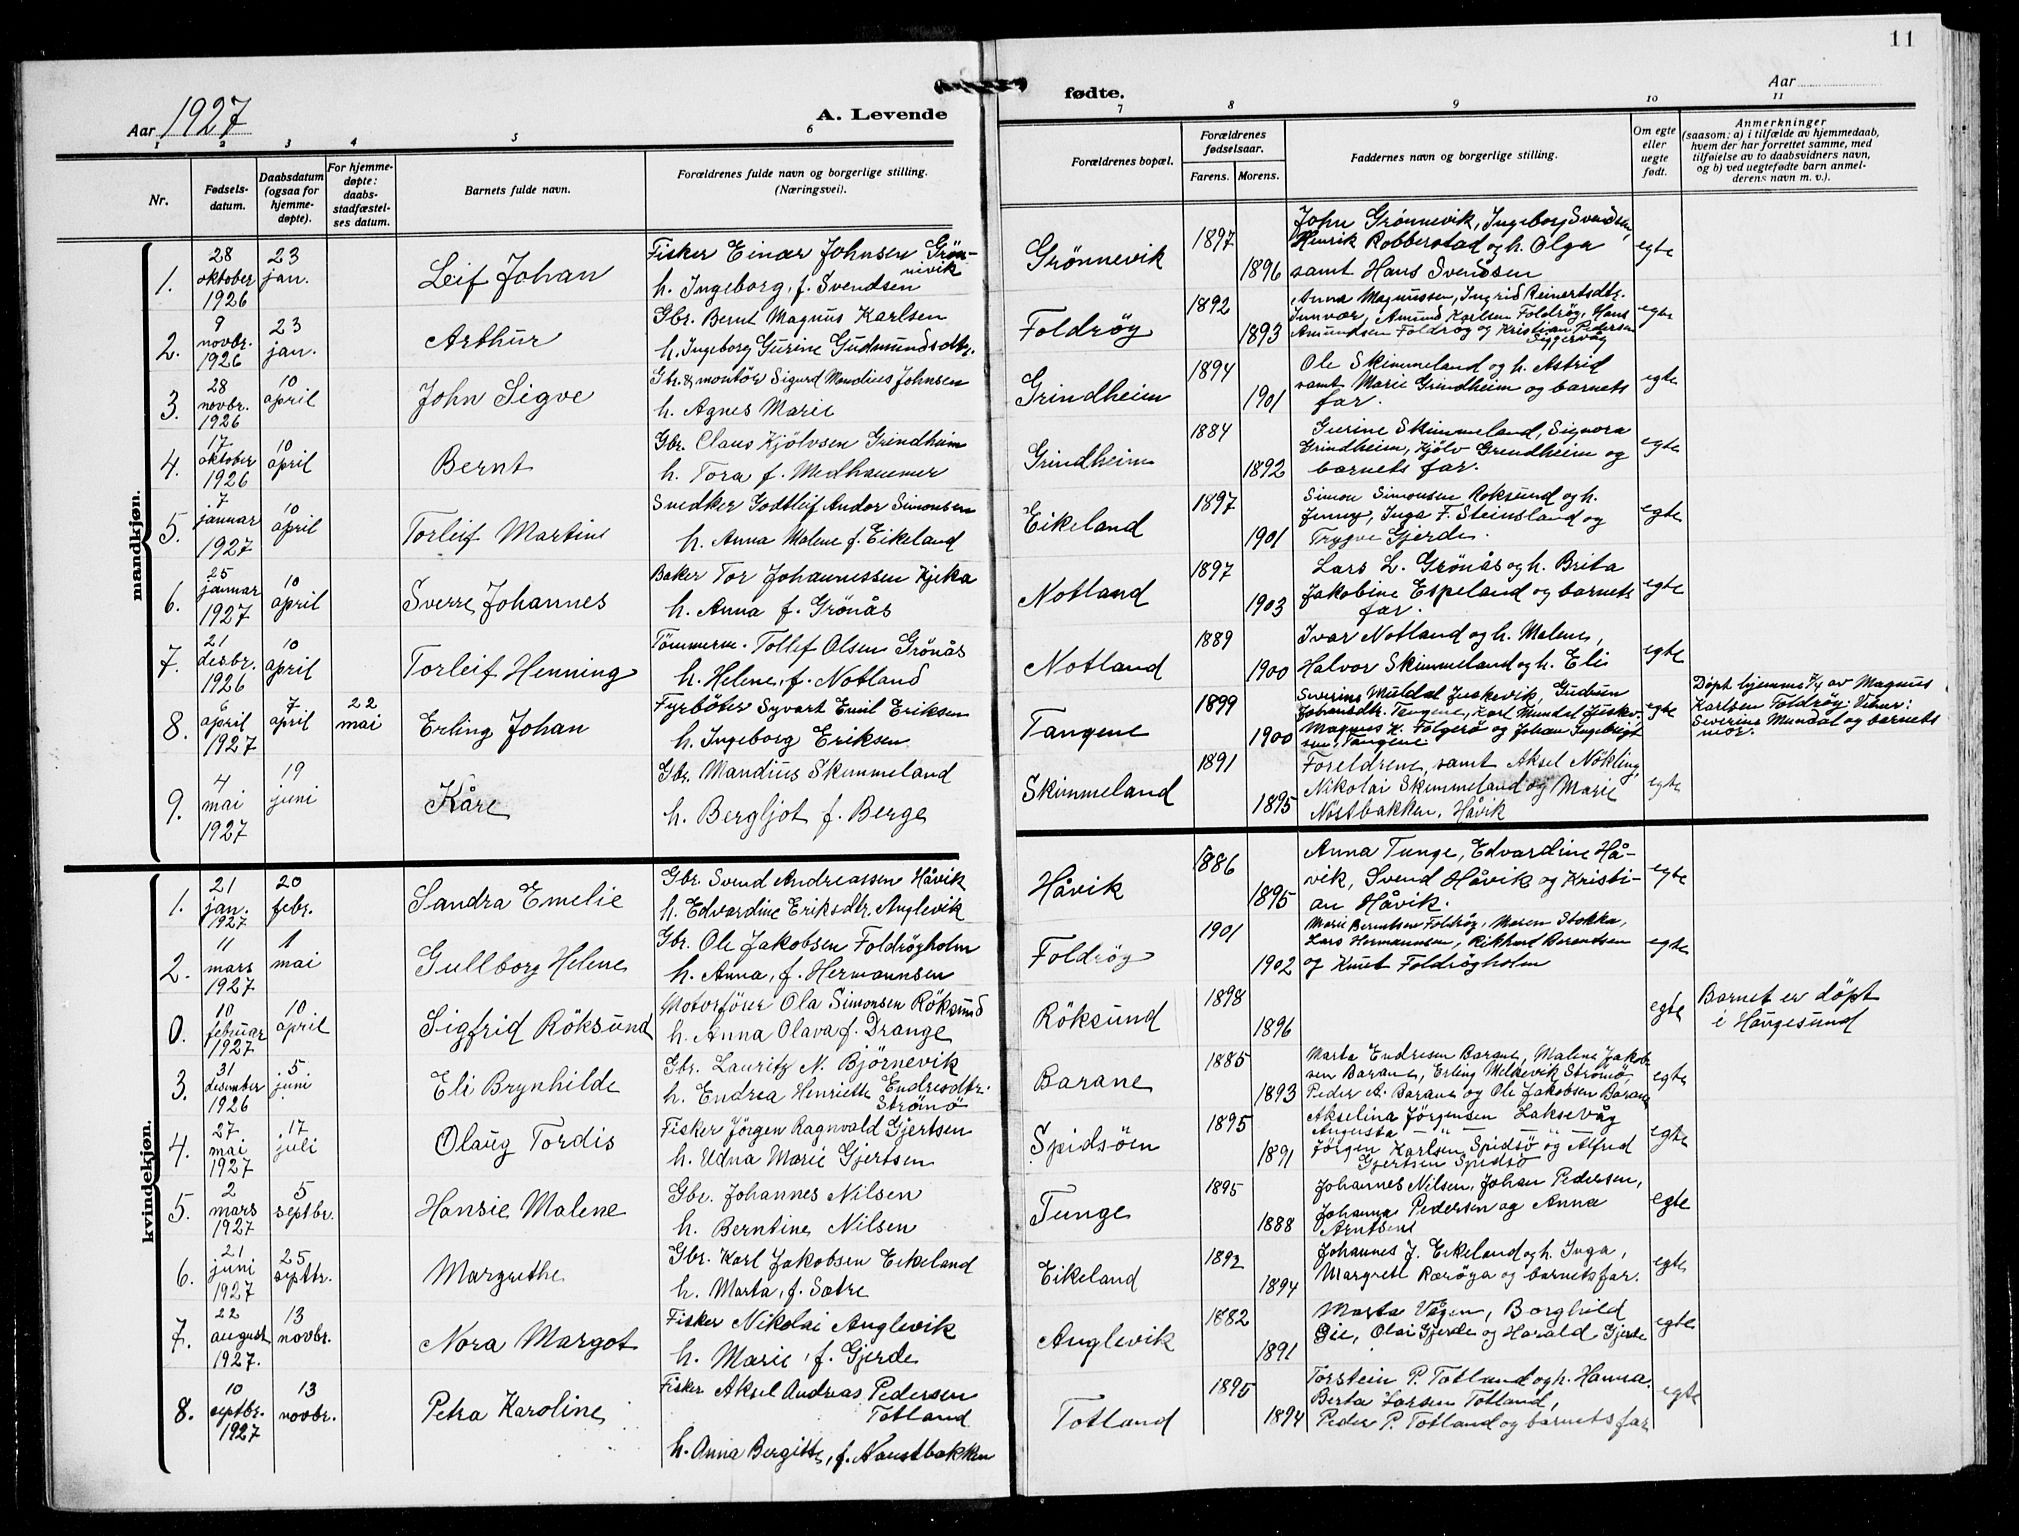 11
Aar 1927
A. Levende
fødte.
Aar
1 2 3 4 5 6 7 8 9 10 11
Nr.
Fødsels-
datum.
Daabsdatum
(ogsaa for
hjemme-
døpte).
For hjemme-
døpte:
daabs-
stadfæstel-
ses datum.
Barnets fulde navn.
Forældrenes fulde navn og borgerlige stilling.
(Næringsvei).
Forældrenes bopæl.
Forældrenes
fødselsaar.
Farens. Morens.
Faddernes navn og borgerlige stilling.
Om egte
eller
uegte
født.
Anmerkninger
(saasom: a) i tilfælde av hjemmedaab,
hvem der har forrettet samme, med
tilføielse av to daabsvidners navn,
og b) ved uegtefødte barn anmel-
derens navn m. v.).
mandkjøn.
1. 28 oktober 1926 23 jan. Leif Johan
Fisker Einar Johnsen Grön-
nevik
h. Ingeborg, f. Svendsen
Grönnevik 1897 1896
John Grönnevik, Ingeborg Svendsen,
Henrik Robberstad og h. Olga
samt Hans Svendsen
egte
2. 9 novbr. 1926 23 jan. Arthur
Gbr. Bernt Magnus Karlsen
h. Ingeborg Gurine Gudmundsdtr.
Foldröy 1892 1893
Anna Magnussen, Ingrid Reinertsdtr.
Innvær, Amund Karlsen Foldröy, Hans
Amundsen Foldröy og Kristian Pedersen
Syggervåg
egte
3. 28 novbr. 1926 10 april John Sigve
Gbr. & montör Sigurd Mandius Johnsen
h. Agnes Marie
Grindheim 1894 1901
Ole Skimmeland og h. Astrid
samt Marie Grindheim og barnets
far.
egte
4. 17 oktober 1926 10 april Bernt
Gbr. Claus Kjölvsen Grindheim
h. Tora f. Medhammer
Grindheim 1884 1892
Gurine Skimmeland, Signora
Grindheim, Kjölv Grindheim og
barnets far.
egte
5. 7 januar 1927 10 april Torleif Martin
Snedker Godtleif Andor Simonsen
h. Anna Malene f. Eikeland
Eikeland 1897 1901
Simon Simonsen Röksund og h.
Jenny, Inga F. Steinsland og
Trygve Gjerde.
egte
6. 25 januar 1927 10 april Sverre Johannes
Baker Tor Johannessen Kjeka
h. Anna f. Grönås
Notland 1897 1903
Lars L. Grönås og h. Brita
Jakobine Espeland og barnets
far.
egte
7. 21 desbr. 1926 10 april Torleif Henning
Tömmerm. Tollef Olsen Grönås
h. Helene, f. Notland
Notland 1889 1900
Ivar Notland og h. Malene,
Halvor Skimmeland og h. Eli
egte
8. 6 april 1927 7 april 22 mai Erling Johan
Fyrböter Syvart Emil Eriksen
h. Ingeborg Eriksen
Tangene 1899 1900
Severine Muldal Juskevik, Gudrun
Johansdtr. Tangene, Karl Mundal Juske-
Magnus K. Folgerö og Johan Ingebrigt
sen, Tangene
egte
Döpt hjemme 7/4 av Magnus
Karlsen Foldröy. Vitner:
Severine Mundal og barnets
mor.
9. 4 mai 1927 19 juni Kåre
Gbr. Mandius Skimmeland
h. Bergljot f. Berge
Skimmeland 1891 1895
Foreldrene, samt Aksel Nökling,
Nikolai Skimmeland og Marie
Nöstbakken, Håvik
egte
kvindekjøn.
1. 21 jan. 1927 20 febr. Sandra Emelie
Gbr. Svend Andreassen Håvik
h. Edvardine Eriksdtr. Anglevik
Håvik 1886 1895
Anna Tunge, Edvardine Hå-
vik, Svend Håvik og Kristi-
an Håvik.
egte
2. 11 mars 1927 1 mai Gullborg Helene
Gbr. Ole Jakobsen Foldröyholm
h. Anna, f. Hermannsen
Foldröy 1901 1902
Marie Berntsen Foldröy, Maren Stokka,
Lars Hermannsen, Rikhard Berentsen
og Knut Foldröyholm
egte
0. 10 februar 1927 10 april Sigfrid Röksund
Motorförer Ola Simonsen Röksund
h. Anna Olava f. Drange
Röksund 1898 1896
egte
Barnet er döpt
i Haugesund
3. 31 desember 1926 5 juni Eli Brynhilde
Gbr. Lauritz N. Björnevik
h. Endrea Henriette Endresdtr.
Strömö
Barane 1885 1893
Marta Endresen Barane, Malene Jakob-
sen Barane, Erling Melkevik Strömö,
Peder A. Barane og Ole Jakobsen Barane
egte
4. 27 mai 1927 17 juli Olaug Tordis
Fisker Jörgen Ragnvald Gjertsen
h. Udna Marie Gjertsen
Spidsöen 1895 1891
Akselina Jörgensen Laksevåg
Augusta — " — — " —
Jörgen Karlsen Spidsö og Alfred
Gjertsen Spidsö
egte
5. 2 mars 1927 5 septbr. Hansie Malene
Gbr. Johannes Nilsen
h. Berntine Nilsen
Tunge 1895 1888
Johannes Nilsen, Johan Pedersen,
Johanna Pedersen og Anna
Arntsen
egte
6. 21 juni 1927 25 septbr. Margrethe
Gbr. Karl Jakobsen Eikeland
h. Marta, f. Sætre
Eikeland 1892 1894
Johannes J. Eikeland og h. Inga,
Margrett Ræröya og barnets far.
egte
7. 22 august 1927. 13 novbr. Nora Margot
Fisker Nikolai Anglevik
h. Marie, f. Gjerde
Anglevik 1882 1891
Marta Vågen, Borghild
Sie, Olai Gjerde og Harald Gjerde
egte
8. 10 septbr. 1927 13 novbr. Petra Karoline
Fisker Aksel Andreas Pedersen
Totland
h. Anna Bergitte, f. Naustbakken
Totland 1895 1894
Torstein P. Totland og h. Hanna.
Berta Larsen Totland,
Peder P. Totland og barnets far
egte